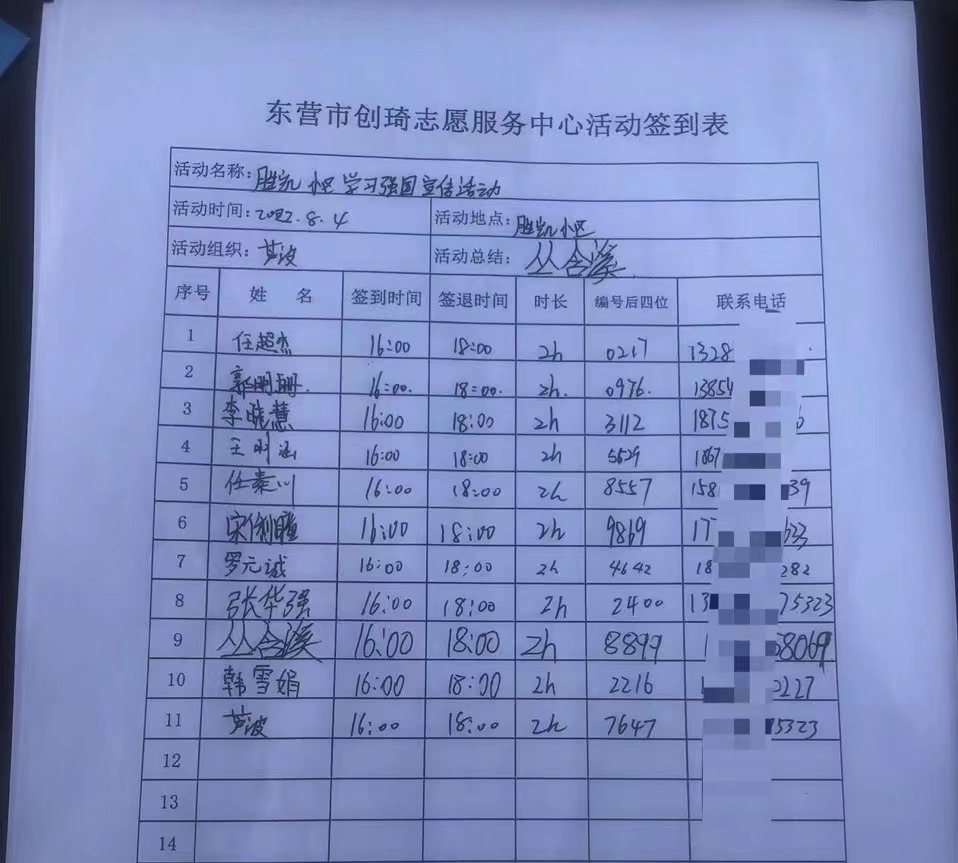 东营市创琦志愿服务中心活动签到表
活动名称:胜凯小区学习强国宣传活动
活动时间:2022.8.4 活动地点:胜凯小区
活动组织:芦波 活动总结:丛含溪
序号 姓名 签到时间 签退时间 时长 编号后四位 联系电话
1 任超杰 16:00 18:00 2h 0217 1328
2 郭明珊. 16:00. 18:00. 2h. 0976. 13854
3 李晓慧 16:00 18:00 2h 3112 1875 6
4 王明涵 16:00 18:00 2h 5629 1867
5 任秦川 16:00 18:00 2h 8557 158 39
6 宋 16:00 18:00 2h 9869 17 633
7 罗元诚 16:00 18:00 2h 4642 18 282
8 张华强 16:00 18:00 2h 2400 13 75323
9 丛含溪 16:00 18:00 2h 8899 1 58069
10 韩雪娟 16:00 18:00 2h 2216 0227
11 芦波 16:00 18:00 2h 7647 5323
12
13
14